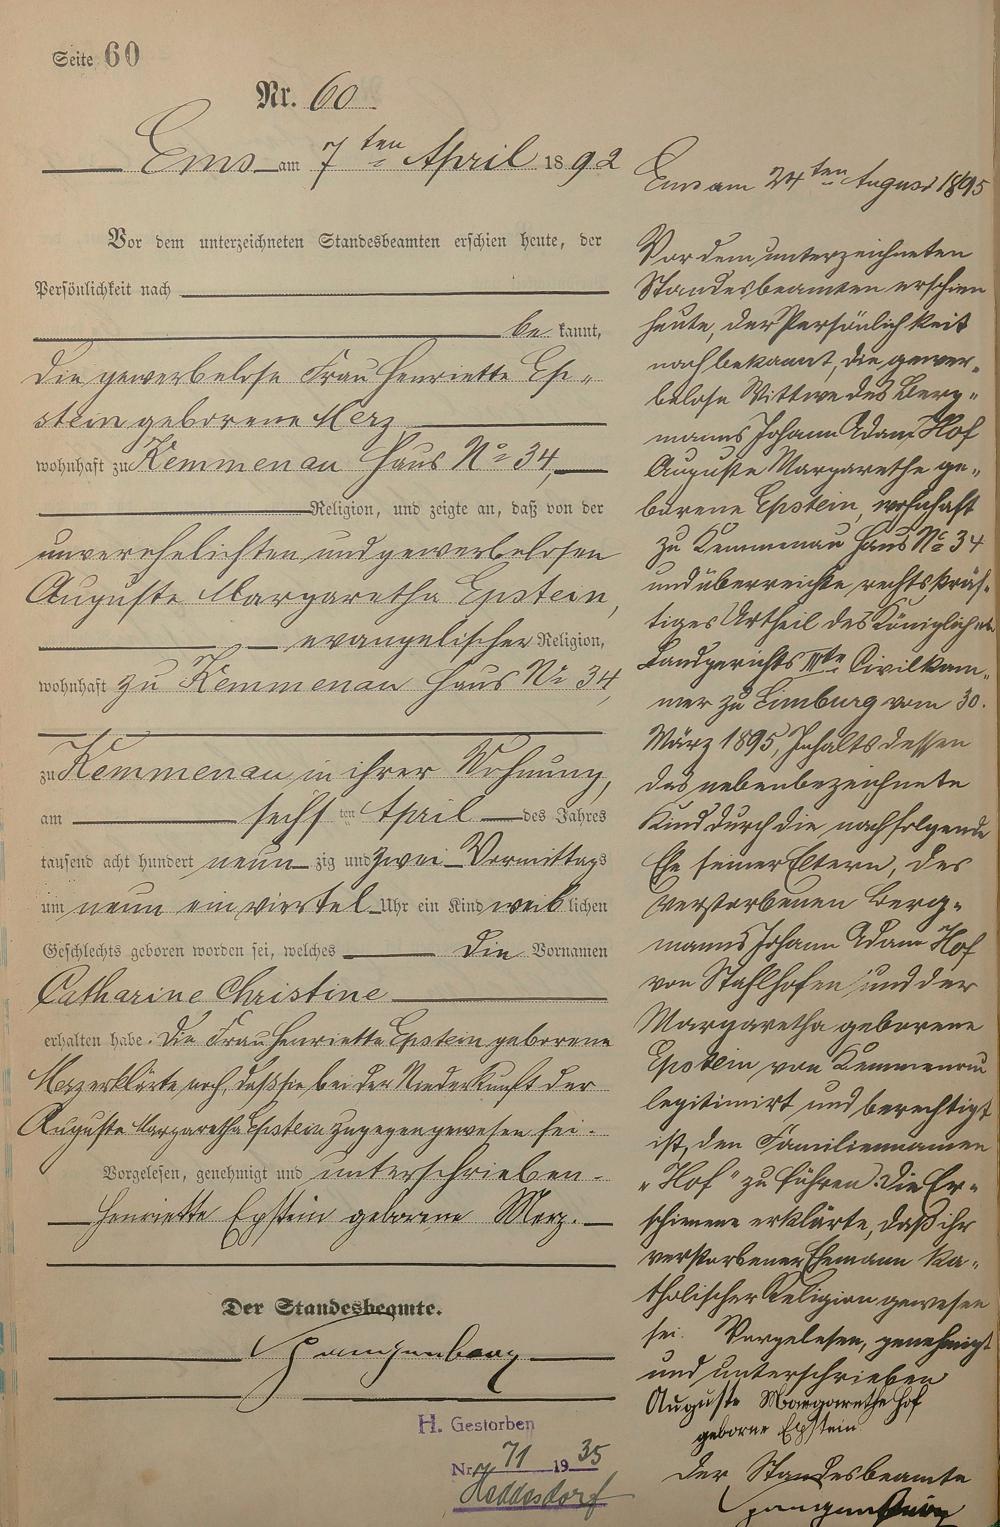 Seite 60
Nr. 60
Ems am 7ten April 1892
Vor dem unterzeichneten Standesbeamten erschien heute, der
Persönlichkeit nach
be kannt,
die gewerbelose Frau Henriette Ep-
stein geborene Merz
wohnhaft zu Kemmenau Haus No 34,
Religion, und zeigte an, daß von der
unverehelichten und gewerbelosen
Auguste Margaretha Epstein,
evangelischer Religion,
wohnhaft zu Kemmenau Haus No 34,
zu Kemmenau in ihrer Wohnung,
am sechs ten April des Jahres
tausend acht hundert neun zig und zwei Vormittags
um neun ein viertel Uhr ein Kind weib lichen
Geschlechts geboren worden sei, welches die Vornamen
Catharine Christine
erhalten habe. Die Frau Henriette Epstein geborene
Merz erklärte noch, daß sie bei der Niederkunft der
Auguste Margaretha Epstein zugegen gewesen sei.
Vorgelesen, genehmigt und unterschrieben.
Henriette Epstein geborene Merz.
Der Standesbeamte.
H. Gestorben
Nr. 71 1935
Heddesdorf
Ems am 24ten August 1895
Vor dem unterzeichneten
Standesbeamten erschien
heute, der Persönlichkeit
nach bekannt, die gewer-
belose Wittwe des Berg-
manns Johann Adam Hof
Auguste Margarethe ge-
borene Epstein, wohnhaft
zu Kemmenau Haus No 34
und überreichte rechtskräf-
tiges Urtheil des Königlichen
Landgerichts IIIte Civilkam-
mer zu Limburg vom 30.
März 1895, Inhalts dessen
das nebenbezeichnete
Kind durch die nachfolgende
Ehe seiner Eltern, des
verstorbenen Berg-
manns Johann Adam Hof
von Stahlhofen und der
Margaretha geborene
Epstein von Kemmenau
legitimirt und berechtigt
ist, den Familiennamen
"Hof" zu führen. Die Er-
schienene erklärte, daß ihr
verstorbener Ehemann ka-
tholischer Religion gewesen
sei. Vorgelesen, genehmigt
und unterschrieben
Auguste Margarethe Hof
geborne Epstein
Der Standesbeamte